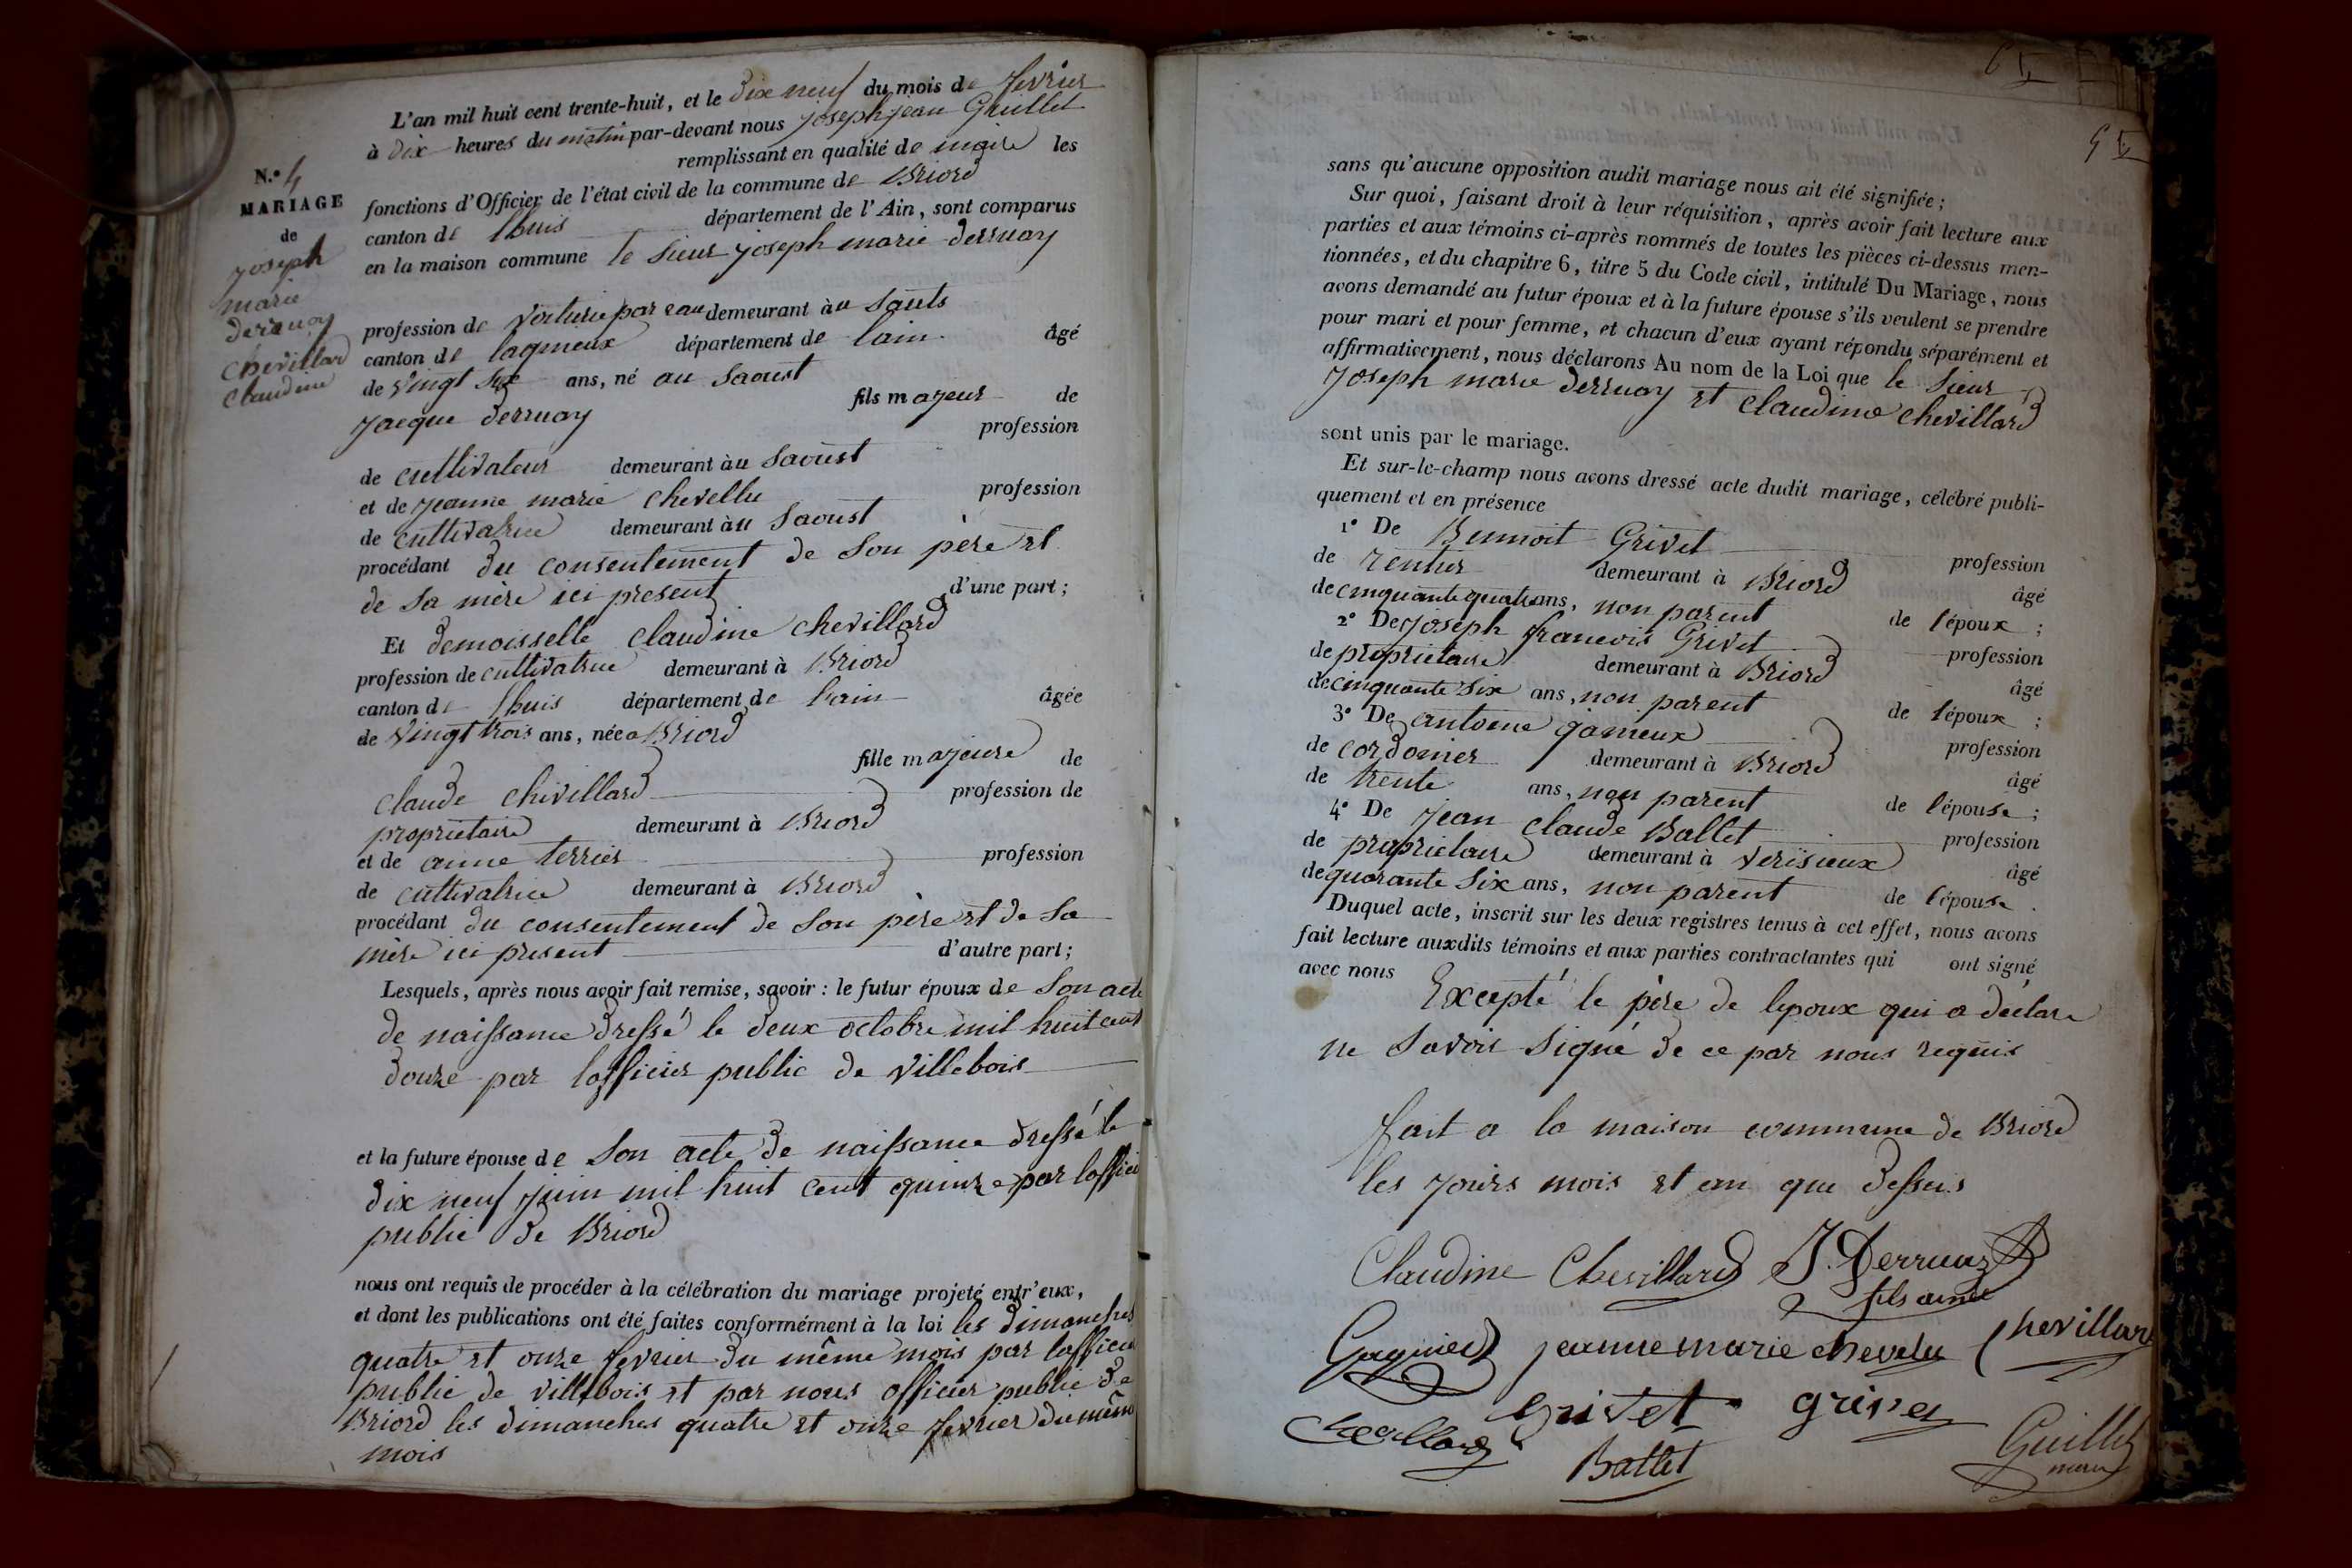 N.º 4
MARIAGE
de
joseph
marie
derruay
chevillard
claudine
L'an mil huit cent trente-huit, et le dix neuf du mois de fevrier
à dix heures du matin par-devant nous joseph jean Guillet
remplissant en qualité de maire les
fonctions d'Officier de l'état civil de la commune de Briord
canton de lhuis département de l'Ain, sont comparus
en la maison commune le sieur joseph marie derruay
profession de voiturie par eau demeurant àu Saults
canton de lagnieux département de lain âgé
de vingt six ans, né au Saoust
fils majeur de
jacque derruay profession
de cultivateur demeurant àu Saoust
et de jeanne marie chevellu profession
de cultivatrice demeurant àu Saoust
procédant du consentement de son père et
de sa mère ici present d'une part;
Et demoisselle claudine chevillard
profession de cultivatrice demeurant à Briord
canton de lhuis département de lain âgée
de vingt trois ans, née a Briord
fille majeure de
claude chevillard profession de
proprietaire demeurant à Briord
et de anne terrier profession
de cultivatrice demeurant à Briord
procédant du consentement de son père et de sa
mère ici present d'autre part;
Lesquels, après nous avoir fait remise, savoir : le futur époux de son acte
de naissance dressé le deux octobre mil huit cent
douze par lofficier public de villebois
et la future épouse de son acte de naissance dressé le
dix neuf juin mil huit cent quinze par loffici
public de Briord
nous ont requis de procéder à la célébration du mariage projeté entr'eux,
et dont les publications ont été faites conformément à la loi les dimanches
quatre et onze fevrier du même mois par lofficier
public de villebois et par nous officier public de
Briord les dimanches quatre et onze fevrier du même
mois
sans qu'aucune opposition audit mariage nous ait été signifiée;
Sur quoi, faisant droit à leur réquisition, après avoir fait lecture aux
parties et aux témoins ci-après nommés de toutes les pièces ci-dessus men-
tionnées, et du chapitre 6, titre 5 du Code civil, intitulé Du Mariage, nous
avons demandé au futur époux et à la future épouse s'ils veulent se prendre
pour mari et pour femme, et chacun d'eux ayant répondu séparément et
affirmativement, nous déclarons Au nom de la Loi que le sieur
joseph marie derruay et claudine chevillard
sont unis par le mariage.
Et sur-le-champ nous avons dressé acte dudit mariage, célébré publi-
quement et en présence
1º De Bennoit Grivet profession
de rentier demeurant à Briord âgé
de cinquante quatre ans, non parent de lépoux ;
2º De joseph francois Grivet profession
de proprietaire demeurant à Briord âgé
de cinquante six ans, non parent de lépoux ;
3º De antoine ganieux profession
de cordonier demeurant à Briord âgé
de trente ans, non parent de lépouse ;
4º De jean claude Ballet profession
de proprietaire demeurant à verisieux âgé
de quarante six ans, non parent de lépouse .
Duquel acte, inscrit sur les deux registres tenus à cet effet, nous avons
fait lecture auxdits témoins et aux parties contractantes qui ont signé
avec nous Excepté le père de lepoux qui a déclare
ne savoir signé de ce par nous requis
fait a la maison commune de Briord
les jours mois et an que dessus
Claudine Chevillard J. Derruaz
fils ainée
jeanne marie chevelu Chevillard
Grivet grivet
Ballet
Guillet
maire